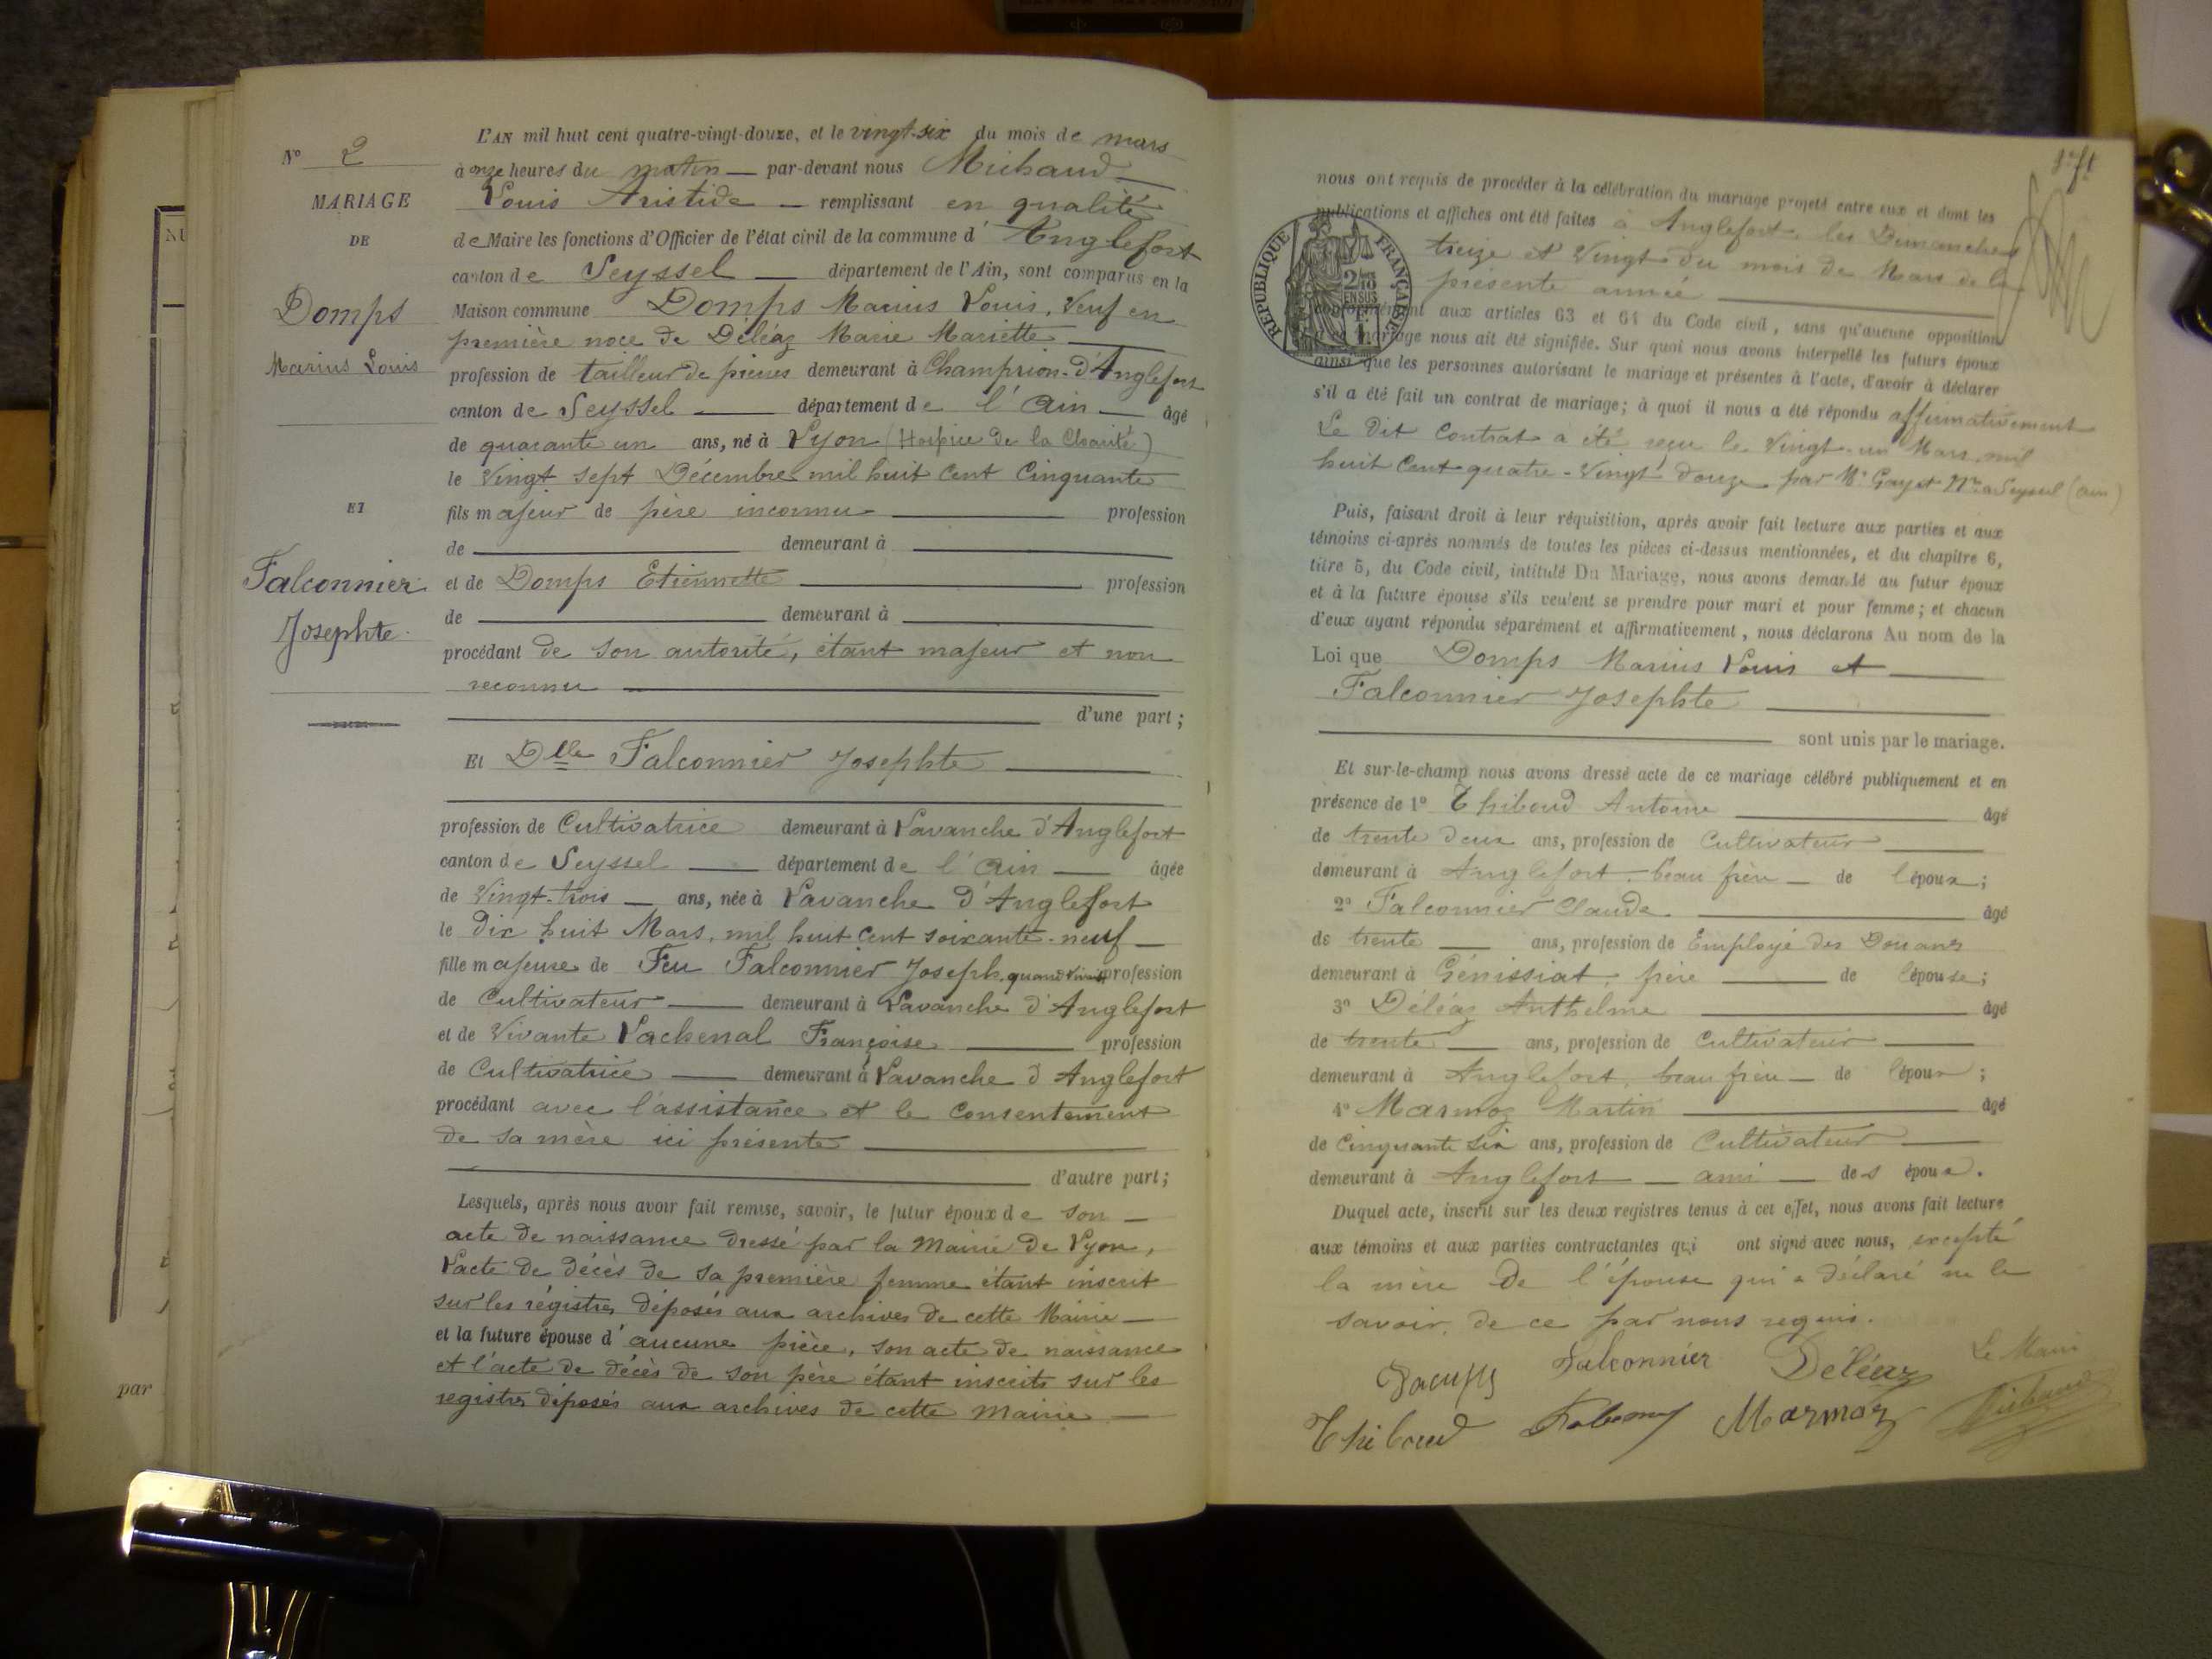 N° 2
MARIAGE
DE
Domps
Marius Louis
ET
Falconnier
Josephte
par
L'AN mil huit cent quatre-vingt-douze, et le vingt-six du mois de mars
à onze heures du matin — par-devant nous Michaud
Louis Aristide — remplissant en qualité
de Maire les fonctions d'Officier de l'état civil de la commune d'Anglefort
canton de Seyssel — département de l'Ain, sont comparus en la
Maison commune Domps Marius Louis, Veuf en
première noce de Déléaz Marie Mariette
profession de tailleur de pierres demeurant à Champrion-d'Anglefort
canton de Seyssel — département de l'Ain — âgé
de quarante un ans, né à Lyon (Hospice de la Charité)
le Vingt sept Décembre mil huit cent Cinquante
fils majeur de père inconnu — profession
de — demeurant à —
et de Domps Etiennette — profession
de — demeurant à —
procédant de son autorité, étant majeur et non
reconnu —
d'une part;
Et Dlle Falconnier Josephte —
profession de Cultivatrice demeurant à Lavanche d'Anglefort
canton de Seyssel — département de l'Ain — âgée
de Vingt-trois — ans, née à Lavanche d'Anglefort
le Dix huit Mars, mil huit cent soixante-neuf —
fille majeure de Feu Falconnier Joseph, quand vivait profession
de Cultivateur — demeurant à Lavanche d'Anglefort
et de Vivante Lachenal Françoise — profession
de Cultivatrice — demeurant à Lavanche d'Anglefort
procédant avec l'assistance et le consentement
de sa mère ici présente —
d'autre part;
Lesquels, après nous avoir fait remise, savoir, le futur époux de son —
acte de naissance dressé par la Mairie de Lyon,
L'acte de décès de sa première femme étant inscrit
sur les régistres déposés aux archives de cette Mairie —
et la future épouse d'aucune pièce, son acte de naissance
et l'acte de décès de son père étant inscrits sur les
registres déposés aux archives de cette Mairie —
nous ont requis de procéder à la célébration du mariage projeté entre eux et dont les
publications et affiches ont été faites à Anglefort, les Dimanches
treize et Vingt du mois de Mars de la
présente année —
RÉPUBLIQUE FRANÇAISE
2/10
EN SUS
conformément aux articles 63 et 64 du Code civil, sans qu'aucune opposition
mariage nous ait été signifiée. Sur quoi nous avons interpellé les futurs époux
ainsi que les personnes autorisant le mariage et présentes à l'acte, d'avoir à déclarer
s'il a été fait un contrat de mariage; à quoi il nous a été répondu affirmativement
Le dit Contrat a été reçu le Vingt-un Mars mil
huit Cent quatre-Vingt Douze par Me Gayet Nre à Seyssel (Ain)
Puis, faisant droit à leur réquisition, après avoir fait lecture aux parties et aux
témoins ci-après nommés de toutes les pièces ci-dessus mentionnées, et du chapitre 6,
titre 5, du Code civil, intitulé Du Mariage, nous avons demandé au futur époux
et à la future épouse s'ils veulent se prendre pour mari et pour femme; et chacun
d'eux ayant répondu séparément et affirmativement, nous déclarons Au nom de la
Loi que Domps Marius Louis et —
Falconnier Josephte —
sont unis par le mariage.
Et sur-le-champ nous avons dressé acte de ce mariage célébré publiquement et en
présence de 1° Thiboud Antoine — âgé
de trente deux ans, profession de Cultivateur —
demeurant à Anglefort, beau frère — de l'époux;
2° Falconnier Claude — âgé
de trente — ans, profession de Employé des Douanes
demeurant à Génissiat, frère — de l'épouse;
3° Déléaz Anthelme — âgé
de trente — ans, profession de Cultivateur —
demeurant à Anglefort, beau frère — de l'époux;
4° Marmoz Martin — âgé
de Cinquante six ans, profession de Cultivateur —
demeurant à Anglefort — ami — des époux.
Duquel acte, inscrit sur les deux registres tenus à cet effet, nous avons fait lecture
aux témoins et aux parties contractantes qui ont signé avec nous, excepté
la mère de l'épouse qui a déclaré ne le
savoir, de ce par nous requis.
Falconnier Déléaz Le Maire
Thiboud Marmoz Michaud